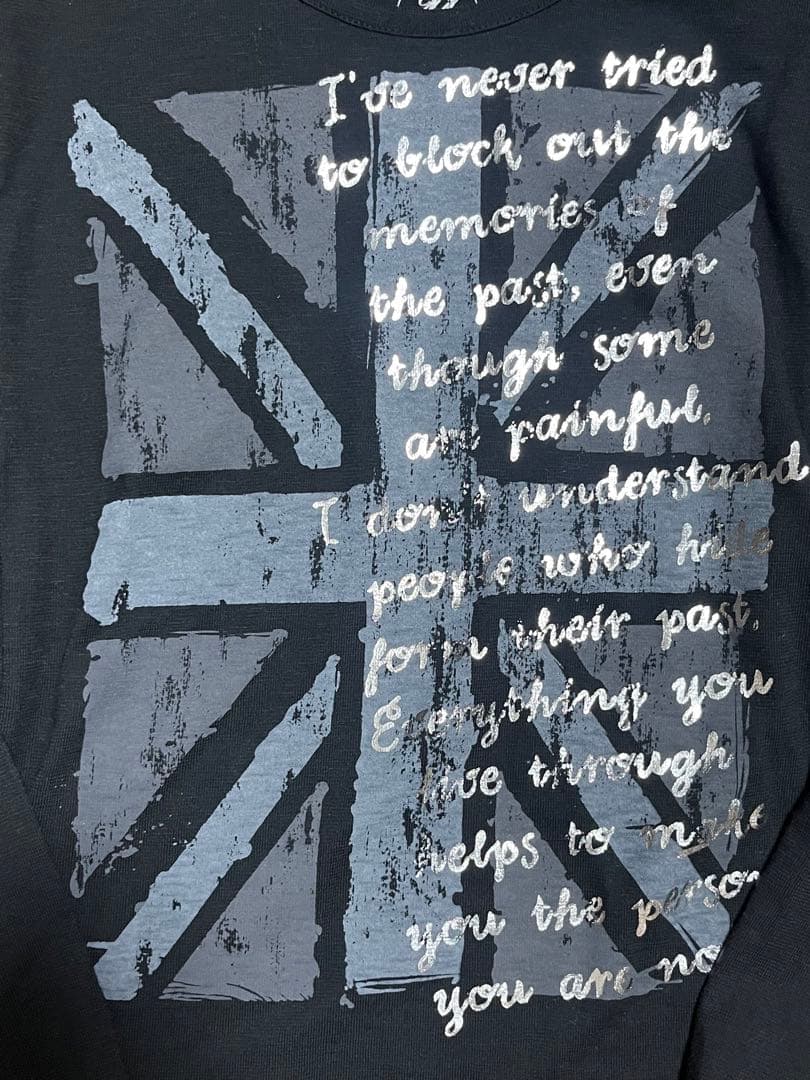 I've never tried
to block out the
memories of
the past, even
though some
are painful.
I don't understand
people who hide
form their past.
Everything you
live through
helps to make
you the person
you are no